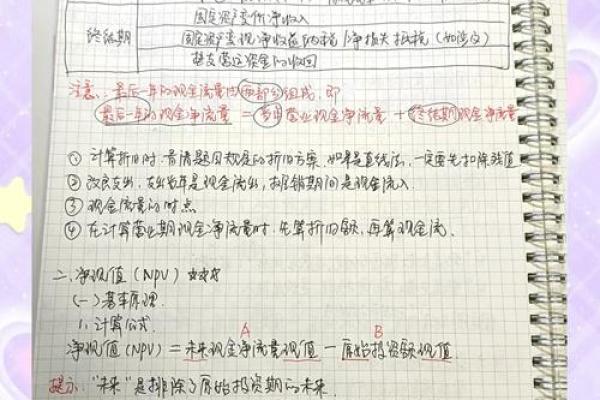 固定资产变价净收入
终结期
固定资产变现净收益纳税/净损失抵税（如涉及）
垫支营运资金的收回
注意：最后一年的现金流量由两部分组成，即
最后一年的现金净流量 = 当年营业现金净流量 + 终结期现金净流量
① 计算折旧时，看清题目规定的折旧方案，如果是直线法，一定要先扣除残值
② 改良支出，支出当年是现金流出，摊销期间是现金流入.
③ 现金流量的时点
④ 在计算营业期现金净流量时，先算折旧额，再算现金流.
二、净现值（NPV）☆☆☆
（一）基本原理.
1、计算公式.
A B
净现值（NPV）= 未来现金净流量现值 - 原始投资额现值
提示："未来"是排除了原始投资期的未来.